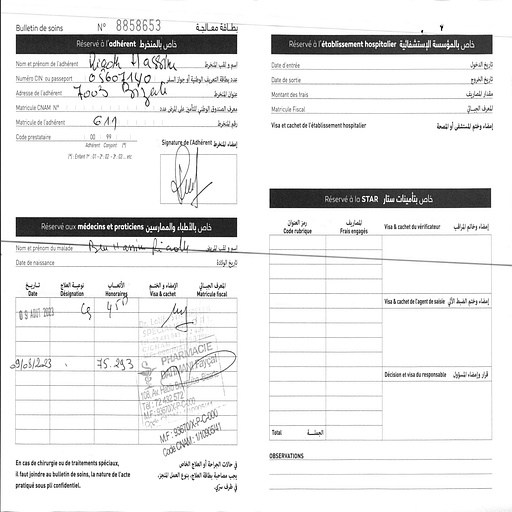 Bulletin de soins N° 8858653 بطاقة معالجة
Réservé à l'adhérent خاص بالمنخرط
Nom et prénom de l'adhérent Riadh Hassine اسم و لقب المنخرط
Numéro CIN ou passeport 03607140 عدد بطاقة التعريف الوطنية أو جواز السفر
Adresse de l'adhérent 7003 Bizerte عنوان المنخرط
Matricule CNAM N°
Matricule de l'adhérent G11 رقم المنخرط
Code prestataire 00 99
Adhérent Conjoint (*)
(*) : Enfant 1er : 01 - 2e : 02 - 3e : 03 ... etc
Signature de l'Adhérent إمضاء المنخرط
Réservé aux médecins et praticiens خاص بالأطباء والممارسين
Nom et prénom du malade Ben Hassin Riadh اسم و لقب المريض
Date de naissance تاريخ الولادة
تاريخ Date
نوعية العلاج Désignation
الأتعاب Honoraires
الإمضاء و الختم Visa & cachet
المعرف الجبائي Matricule fiscal
09 AOUT 2023 Cs 45D
PHARMACIE
09/08/2023 75.293
Tél : 72.432.572
M.F : 93670/X-P-C-000
Code CNAM : 1/10905/41
En cas de chirurgie ou de traitements spéciaux,
il faut joindre au bulletin de soins, la nature de l'acte
pratiqué sous pli confidentiel.
في حالات الجراحة أو العلاج الخاص
يجب مصاحبة بطاقة العلاج، بنوع العمل المنجز،
في ظرف سري.
Réservé à l'établissement hospitalier خاص بالمؤسسة الإستشفائية
Date d'entrée تاريخ الدخول
Date de sortie تاريخ الخروج
Montant des frais مقدار المصاريف
Matricule Fiscal المعرف الجبائي
Visa et cachet de l'établissement hospitalier إمضاء وختم المستشفى أو المصحة
Réservé à la STAR خاص بتأمينات ستار
رمز العنوان Code rubrique
المصاريف Frais engagés
Visa & cachet du vérificateur إمضاء وختم المراقب
Visa & cachet de l'agent de saisie إمضاء وختم الضبط الآلي
Décision et visa du responsable قرار وإمضاء المسؤول
Total الجملة
OBSERVATIONS